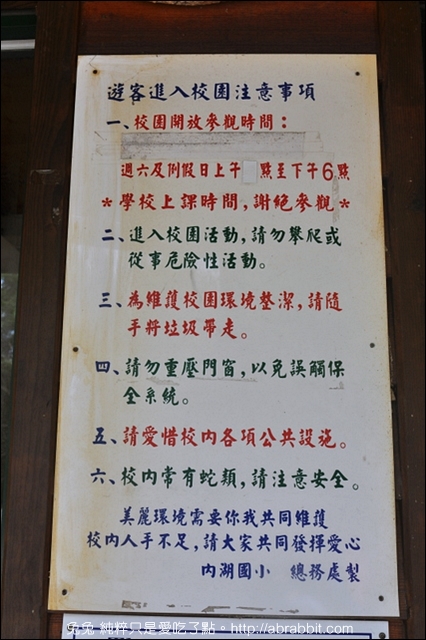 遊客進入校園注意事項
一、校園開放參觀時間：
週六及例假日上午 點至下午6點
＊學校上課時間，謝絕參觀＊
二、進入校園活動，請勿攀爬或
從事危險性活動。
三、為維護校園環境整潔，請隨
手將垃圾帶走。
四、請勿重壓門窗，以免誤觸保
全系統。
五、請愛惜校內各項公共設施。
六、校內常有蛇類，請注意安全。
美麗環境需要你我共同維護
校內人手不足，請大家共同發揮愛心
內湖國小 總務處製
兔兔 純粹只是愛吃了點。http://abrabbit.com